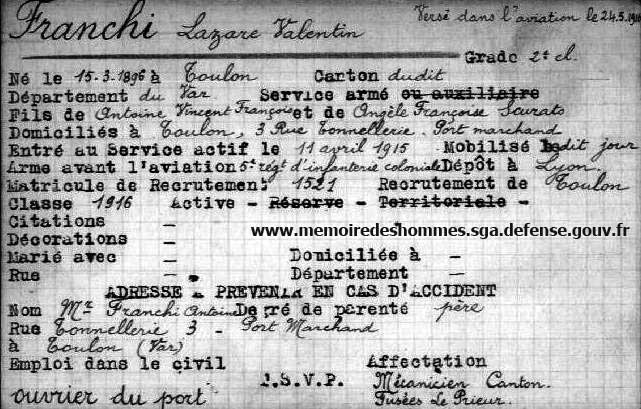 Franchi Lazare Valentin Versé dans l'aviation le 24.5.1916
Grade 2e cl.
Né le 15.3.1896 à Toulon Canton dudit
Département du Var Service armé ou auxiliaire
Fils de Antoine Vincent François et de Angèle Françoise Scurato
Domiciliés à Toulon, 3 Rue Tonnellerie. Port marchand
Entré au Service actif le 11 avril 1915 Mobilisé le dit jour
Arme avant l'aviation 5e régt d'infanterie coloniale Dépôt à Lyon.
Matricule de Recrutement 1521 Recrutement de Toulon
Classe 1916 Active - Réserve - Territoriale -
Citations -
Décorations -
www.memoiredeshommes.sga.defense.gouv.fr
Marié avec - Domiciliée à -
Rue - Département -
ADRESSE A PREVENIR EN CAS D'ACCIDENT
Nom Mr Franchi Antoine Degré de parenté père
Rue Tonnellerie 3 - Port Marchand
à Toulon (Var)
Emploi dans le civil Affectation
ouvrier du port T.S.V.P. Mécanicien Canton.
Fusées Le Prieur.